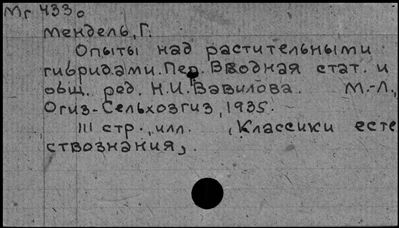 Мг 433о
Мендель, Г.
Опыты над растительными
гибридами. Пер. Вводная стат. и
общ. ред. Н.И. Вавилова. М.-Л.,
Огиз-Сельхозгиз, 1935.
III стр., илл. (Классики есте
ствознания).